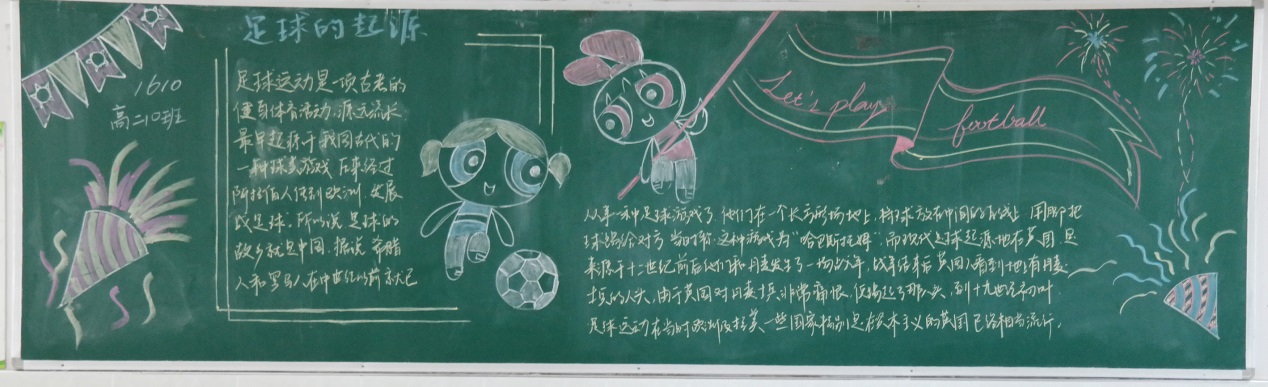 足球的起源
1610
高二10班
足球运动是一项古老的
健身体育活动,源远流长
最早起源于我国古代的
一种球类游戏 后来经过
阿拉伯人传到欧洲,发展
成足球,所以说 足球的
故乡就是中国.据说,希腊
人和罗马人在中世纪以前就已
Let's plays football
从事一种足球游戏了,他们在一个长方形场地上,将球放在中间的白线上 用脚把
球踢给对方 当时称 这种游戏为"哈巴斯托姆".而现代足球起源地在英国.是
来源于十二世纪前后他们和丹麦发生了一场战争,战争结束后 英国人看到地上有丹麦
士兵的人头,由于英国对丹麦士兵非常痛恨,便踢起了那人头,到十九世纪初叶
足球运动在当时欧洲及拉美一些国家特别是在资本主义的英国已经相当流行.